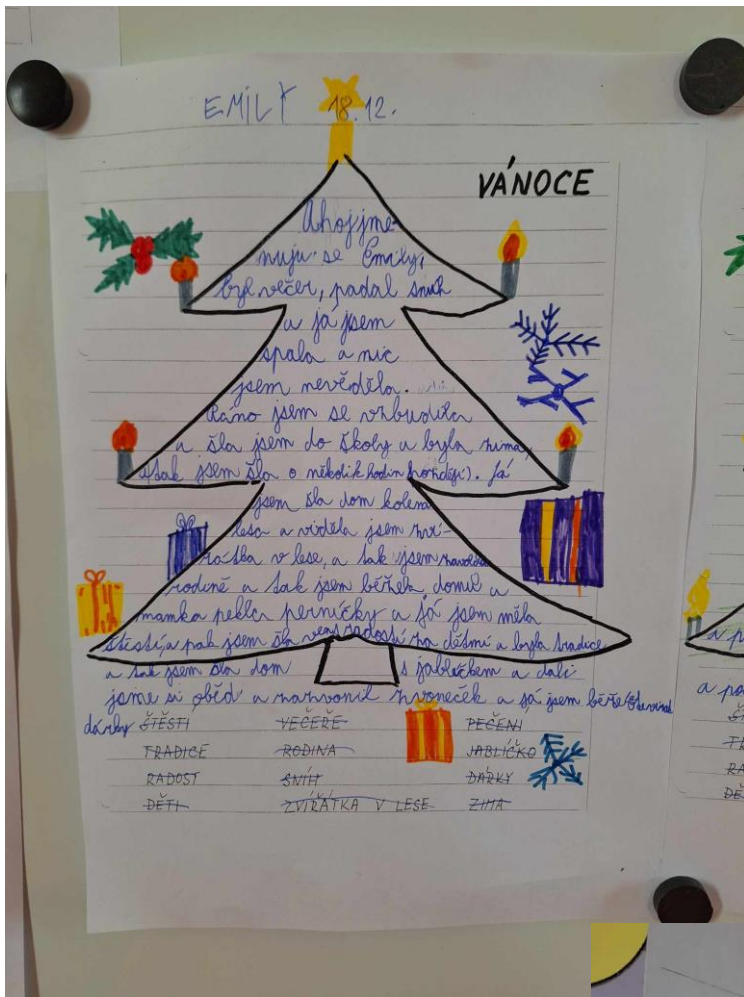 EMILY 18.12.
VÁNOCE
Ahoj jme-
nuju se Emily,
byl večer, padal sníh
a já jsem
spala a nic
jsem nevěděla.
Ráno jsem se vzbudila
a šla jsem do školy a byla zima,
(tak jsem šla o několik hodin později). Já
jsem šla dom kolem
lesa a viděla jsem zví-
řátka v lese, a tak jsem zavolala
rodině a tak jsem běžela domů a
mamka pekla perníčky a já jsem měla
štěstí a pak jsem šla ven s radostí za dětmi a byla tradice
a tak jsem šla dom s jablečkem a dali
jsme si oběd a zazvonil zvoneček a já jsem běžela
dárky ŠTĚSTÍ VEČEŘE PEČENÍ
TRADICE RODINA JABLÍČKO
RADOST SNÍH DÁRKY
DĚTI ZVÍŘÁTKA V LESE ZIMA